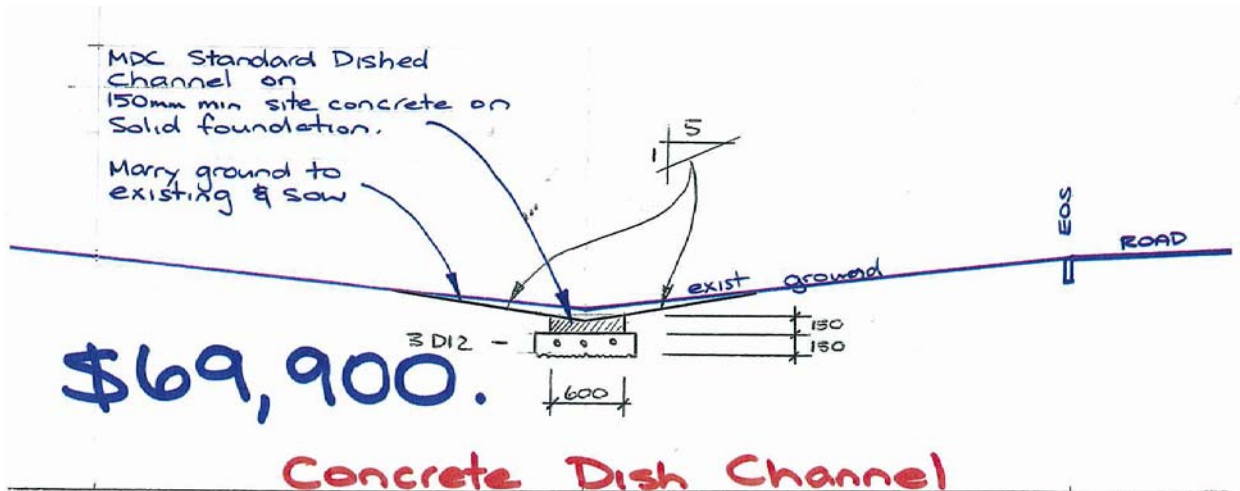 MDC Standard Dished
Channel on
150mm min site concrete on
Solid foundation.
Marry ground to
existing & sow
1
5
EOS
ROAD
exist ground
3 D12 -
150
150
$69,900.
600
Concrete Dish Channel